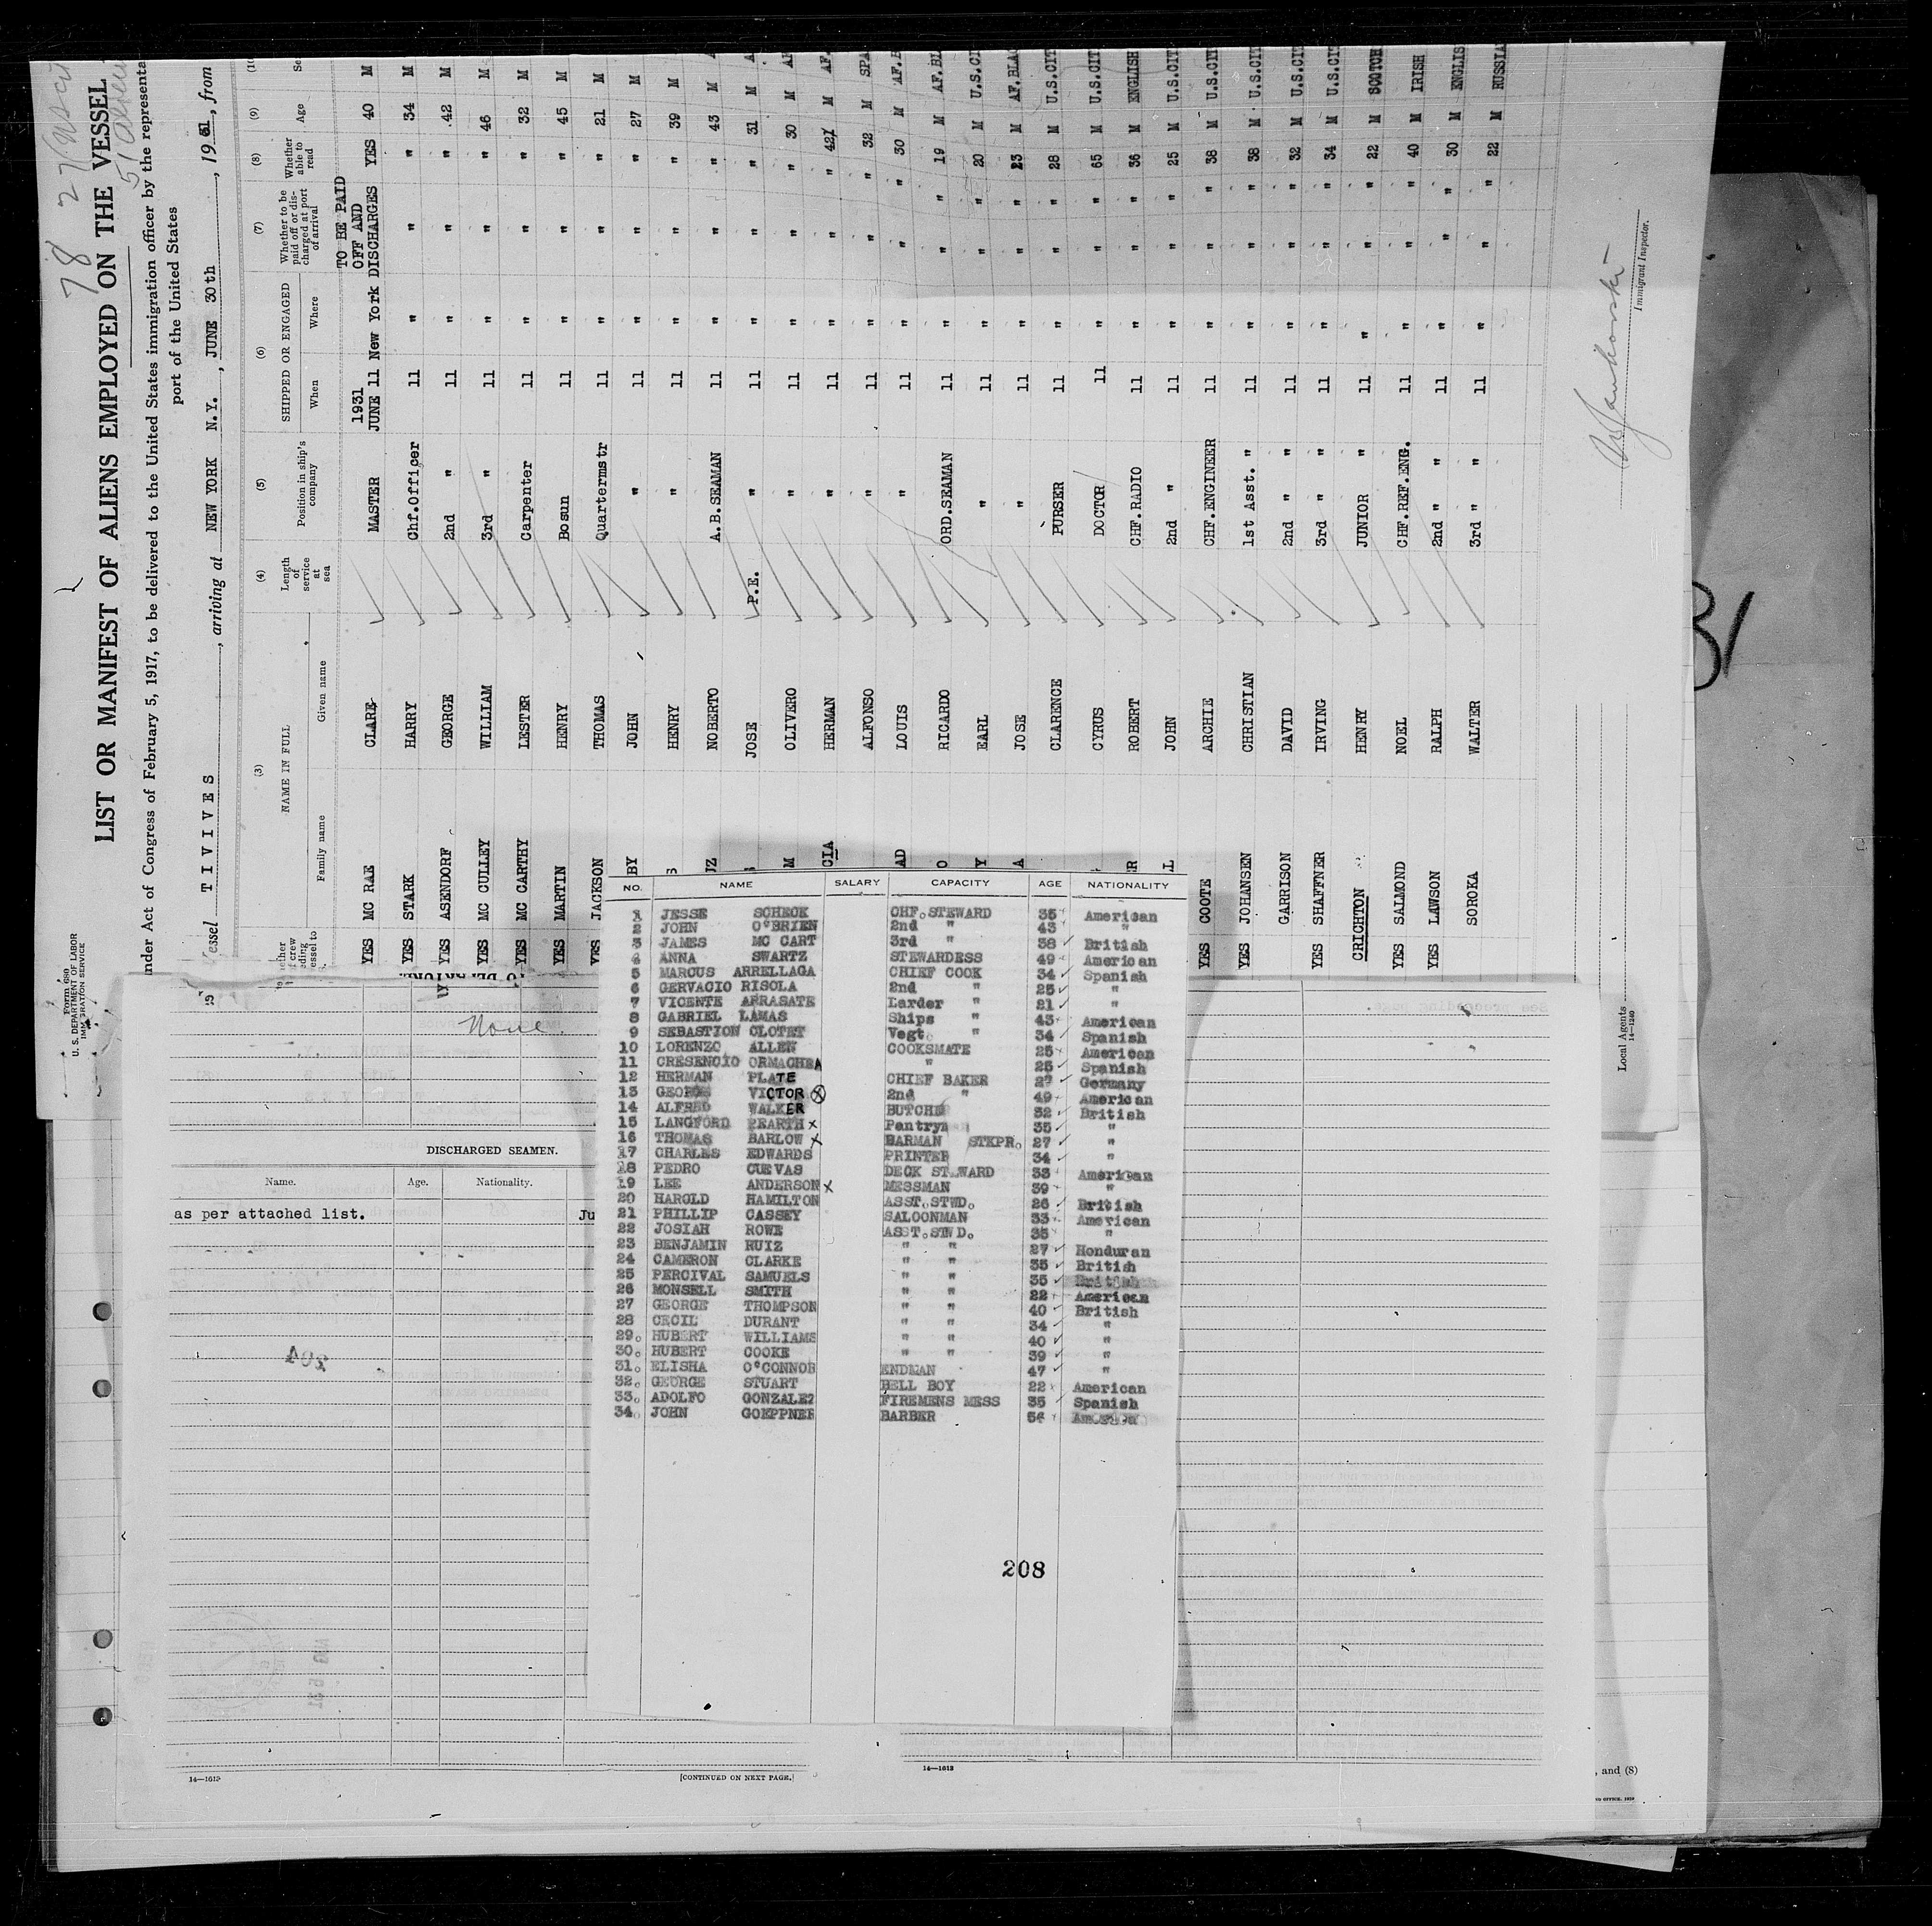 LIST OR MANIFEST OF ALIENS EMPLOYED ON THE VESSEL
nder Act of Congress of February 5, 1917, to be delivered to the United States immigration officer by the representa
port of the United States
essel TIVIVES, arriving at NEW YORK N.Y., JUNE 30th, 1931, from
Form 680
U. S. DEPARTMENT OF LABOR
IMMIGRATION SERVICE
78 27
(3) (4) (5) (6) (7) (8) (9)
NAME IN FULL
Family name Given name
Length of service at sea
Position in ship's company
SHIPPED OR ENGAGED
When Where
Whether to be paid off or discharged at port of arrival
Whether able to read
Age
1931 TO BE PAID OFF AND
YES MC RAE CLARE MASTER JUNE 11 New York DISCHARGES YES 40 M
YES STARK HARRY Chf.Officer 11 " " " 34 M
YES ASENDORF GEORGE 2nd " 11 " " " 42 M
YES MC CULLEY WILLIAM 3rd " 11 " " " 46 M
YES MC CARTHY LESTER Carpenter 11 " " " 32 M
YES MARTIN HENRY Bosun 11 " " " 45 M
YES JACKSON THOMAS Quartermstr 11 " " " 21 M
BY JOHN " 11 " " " 27 M
HENRY " 11 " " " 39 M
UZ NOBERTO A.B.SEAMAN 11 " " " 43 M
JOSE P.E. " 11 " " " 31 M
M OLIVERO " 11 " " " 30 M
CIA HERMAN " 11 " " " 42 M AF.
ALFONSO " 11 " " " 32 M SPA
AD LOUIS " 11 " " " 30 M AF.B
O RICARDO ORD.SEAMAN 11 " " " 19 M AF.BL
Y EARL " 11 " " " 20 M U.S.CI
A JOSE " 11 " " " 23 M AF.BLA
CLARENCE PURSER 11 " " " 28 M U.S.CIT
CYRUS DOCTOR 11 " " " 65 M U.S.CIT
R ROBERT CHF.RADIO 11 " " " 36 M ENGLISH
JOHN 2nd " 11 " " " 25 M U.S.CIT
YES COOTE ARCHIE CHF.ENGINEER 11 " " " 38 M U.S.CIT
YES JOHANSEN CHRISTIAN 1st Asst. " 11 " " " 38 M U.S.CIT
GARRISON DAVID 2nd " " 11 " " " 32 M U.S.CI
YES SHAFFNER IRVING 3rd " " 11 " " " 34 M U.S.CIT
CRICHTON HENRY JUNIOR " 11 " " " 22 M SCOTCH
YES SALMOND NOEL CHF.REF.ENG. 11 " " " 40 M IRISH
YES LAWSON RALPH 2nd " " 11 " " " 30 M ENGLIS
SOROKA WALTER 3rd " " 11 " " " 22 M RUSSIA
Immigrant Inspector.
Local Agents
14-1240
31
None
DISCHARGED SEAMEN.
Name. Age. Nationality.
as per attached list. Ju
204
14—1613
[CONTINUED ON NEXT PAGE.]
14—1613
, and (8)
NO. NAME SALARY CAPACITY AGE NATIONALITY
1 JESSE SCHECK CHF.STEWARD 35 American
2 JOHN O'BRIEN 2nd " 43 "
3 JAMES MC CART 3rd " 38 British
4 ANNA SWARTZ STEWARDESS 49 American
5 MARCUS ARRELLAGA CHIEF COOK 34 Spanish
6 GERVACIO RISOLA 2nd " 25 "
7 VICENTE ARRASATE Larder " 21 "
8 GABRIEL LAMAS Ships " 43 American
9 SEBASTION CLOTET Vegt. " 34 Spanish
10 LORENZO ALLEN COOKSMATE 25 American
11 CRESENCIO ORMACHEA " 25 Spanish
12 HERMAN PLATE CHIEF BAKER 27 Germany
13 GEORGE VICTOR 2nd " 49 American
14 ALFRED WALKER BUTCHE 32 British
15 LANGFORD PEARTH x Pantrym 35 "
16 THOMAS BARLOW x BARMAN STKPR. 27 "
17 CHARLES EDWARDS PRINTER 34 "
18 PEDRO CUEVAS DECK STEWARD 33 American
19 LEE ANDERSON x MESSMAN 39 "
20 HAROLD HAMILTON ASST.STWD. 26 British
21 PHILLIP CASSEY SALOONMAN 33 American
22 JOSIAH ROWE ASST.STWD. 35 "
23 BENJAMIN RUIZ " " 27 Honduran
24 CAMERON CLARKE " " 35 British
25 PERCIVAL SAMUELS " " 35 British
26 MONSELL SMITH " " 22 American
27 GEORGE THOMPSON " " 40 British
28 CECIL DURANT " " 34 "
29. HUBERT WILLIAMS " " 40 "
30. HUBERT COOKE " " 39 "
31. ELISHA O'CONNOR ENDMAN 47 "
32. GEORGE STUART BELL BOY 22 American
33. ADOLFO GONZALEZ FIREMENS MESS 35 Spanish
34. JOHN GOEPPNER BARBER 56 American
208